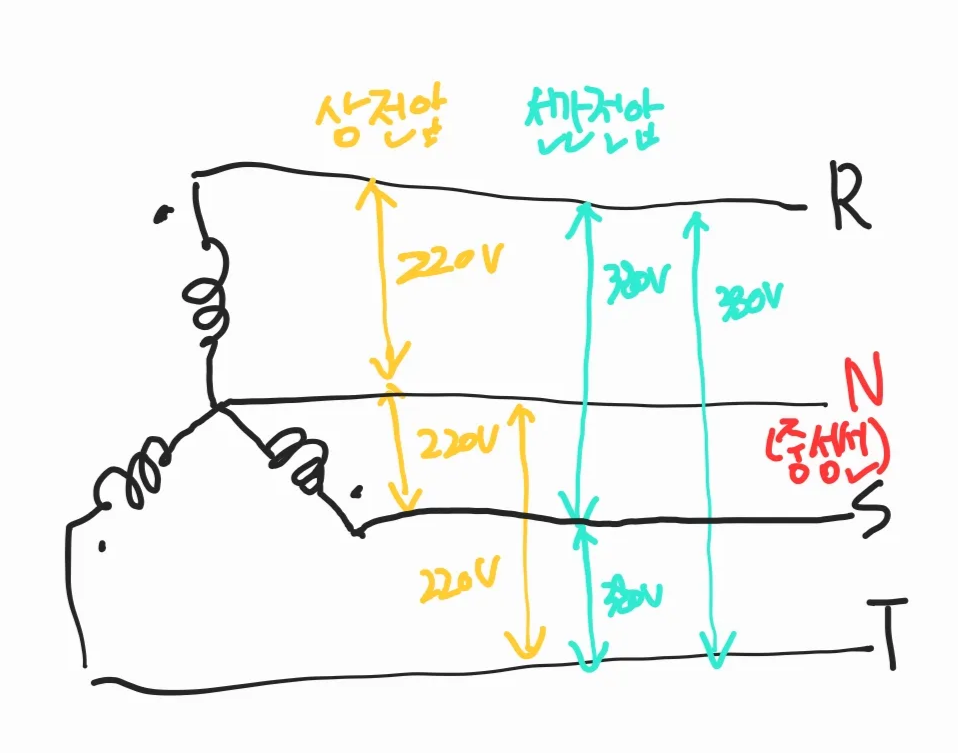 상전압 선간전압
R
220V 380V 380V
N
220V (중성선)
S
220V 380V
T